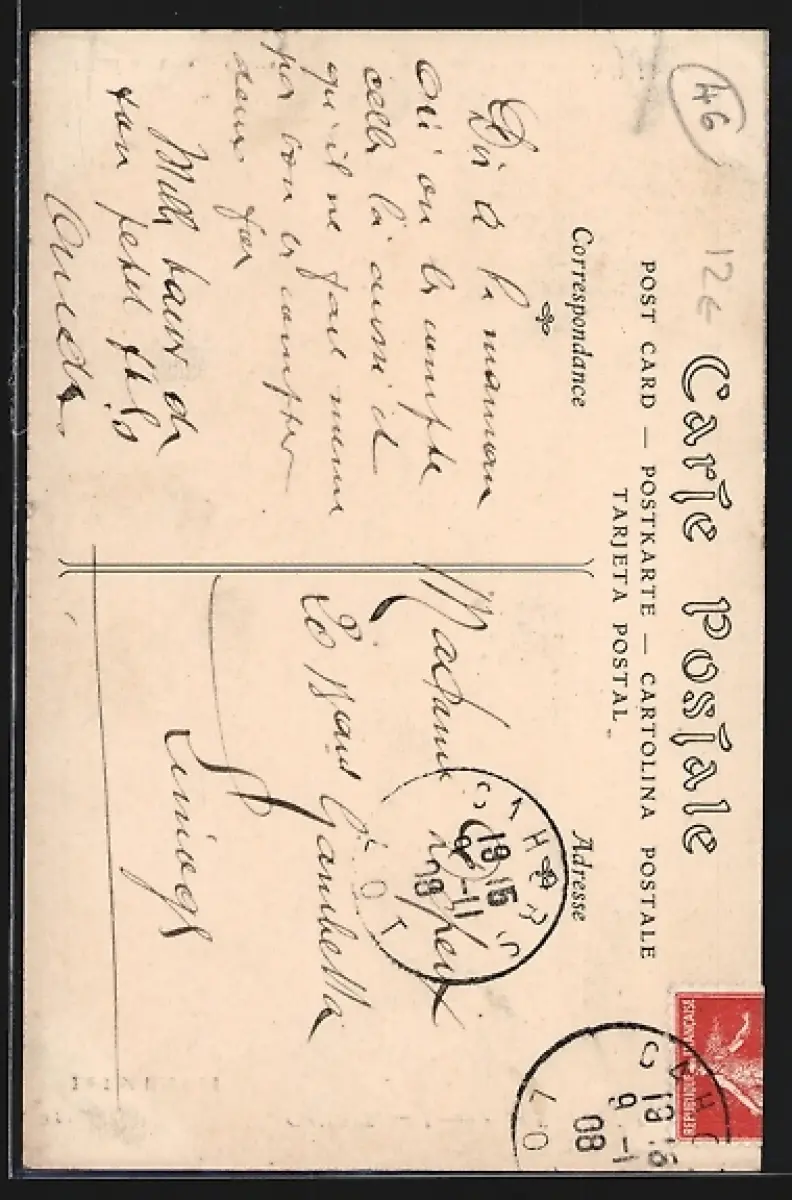 46
12€
Carte Postale
POST CARD — POSTKARTE — CARTOLINA POSTALE
TARJETA POSTAL
Correspondance
Dis à la maman
oui on la compte
celle là aussi et
qu'il ne faut même
pas bon compter
deux fois
Mille baisers de
ton petit fils
Adresse
Madame
20 Bould Gambetta
Limoges
CAHORS
LOT
18 15
9-11
08
REPUBLIQUE FRANÇAISE
CAHO
18 15
9-1
08
LO